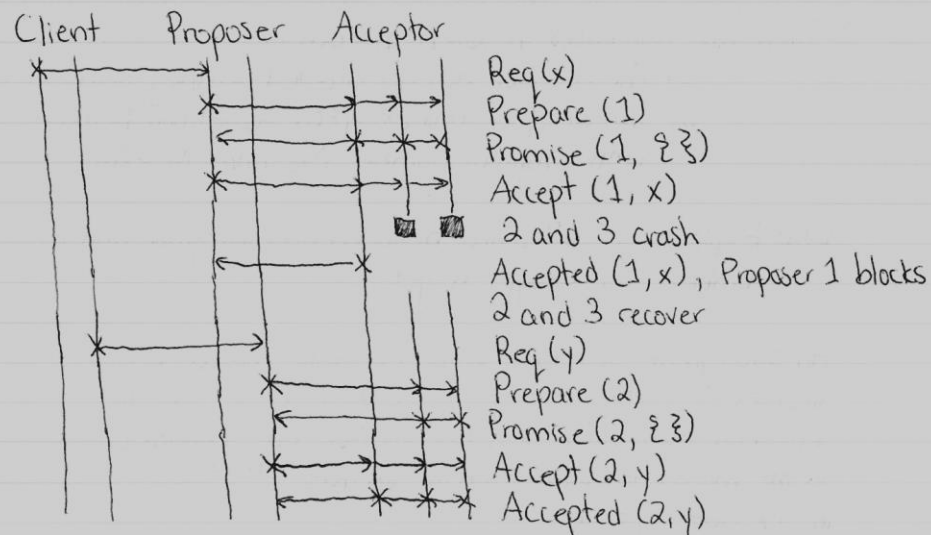 Client Proposer Acceptor
Req(x)
Prepare (1)
Promise (1, {})
Accept (1, x)
2 and 3 crash
Accepted (1,x), Proposer 1 blocks
2 and 3 recover
Req(y)
Prepare (2)
Promise (2, {})
Accept (2, y)
Accepted (2,y)